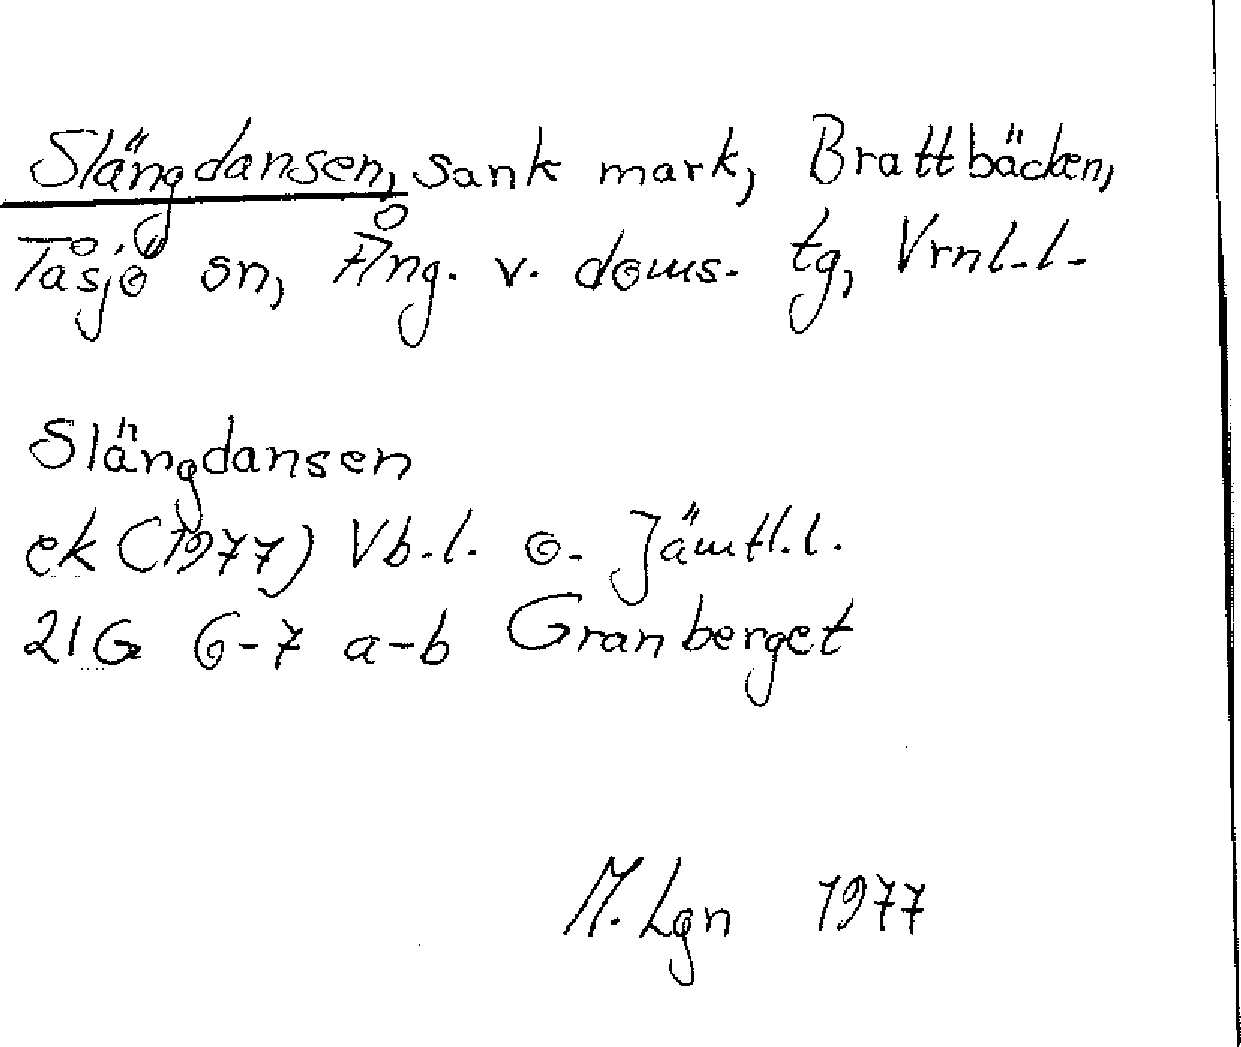 Slängdansen, sank mark, Brattbäcken,
Tåsjö sn, Ång. v. doms. tg, Vrnl. l.
Slängdansen
ek (1977) Vb. l. o. Jämtl. l.
21G 6-7 a-b Granberget
M. Lgn 1977